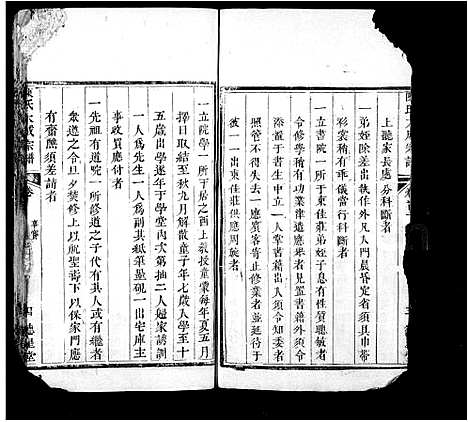 上聽家長處分科斷者
一弟姪除差出執作外凡人門晨昏定省須具巾帶
彩裳稍有乖儀當行科斷者
一立書院一所于東佳莊弟姪子息有性質聰敏者
令修學稍有功業津遣應舉者見置書籍外須令
添置于書生中立一人掌書籍出入須令知委者
照管不得失去一應賓客肯止修業者並延待于
彼一一出東佳莊供應周旋者
一立院學一所于居之西上
教授童蒙每年夏五月
擇日取結至秋九月解散童子年七歲入學至十
五歲出學遂年于學堂內次第抽二人婦家誘訓
一人爲先生一人爲副其紙筆墨硯一出宅庫主
事收買應付者
一先祖有道院一所修道之子代有其人或有繼者
衆遵之令旦夕焚修上以祝聖壽下以保家門應
有齋醮須差請者
氏大成宗譜
卷
堂